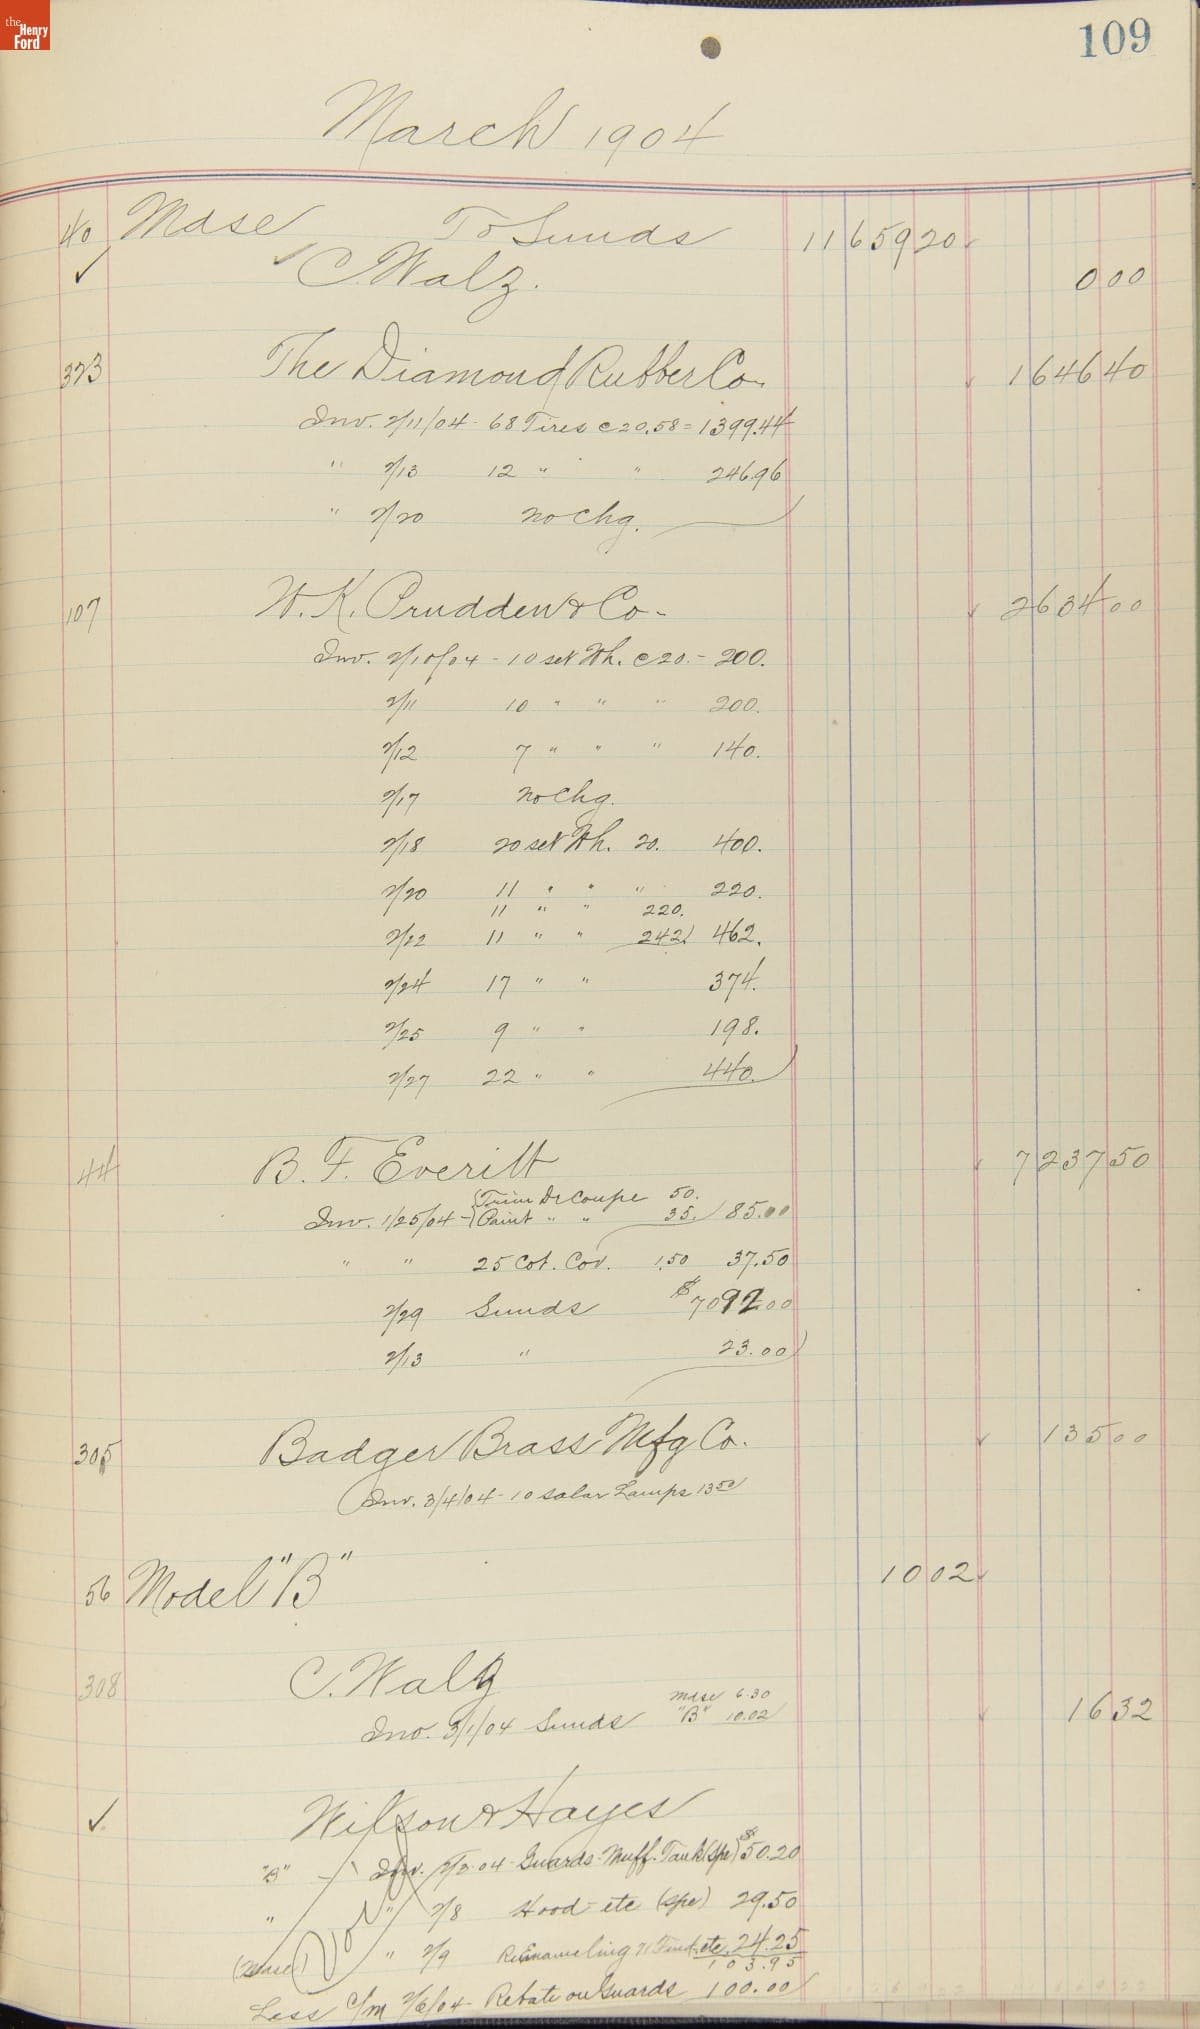 the Henry Ford
109
March 1904
40 Mdse To Sunds 11659 20
✓ ✓ C. Walz. 0 00
323 The Diamond Rubber Co. 1646 40
Inv. 2/11/04 - 68 Tires @ 20.58 = 1399.44
" 2/13 12 " " 246.96
" 2/20 no chg.
107 W. K. Prudden & Co - 2634 00
Inv. 2/10/04 - 10 set Wh. @ 20. - 200.
2/11 10 " " " 200.
2/12 7 " " " 140.
2/17 no chg.
2/18 20 set Wh. 20. 400.
2/20 11 " " " 220.
11 " " 220.
2/22 11 " " 242. 462.
2/24 17 " " 374.
2/25 9 " " 198.
2/27 22 " " 440.
44 B. F. Everitt 7237 50
Trim Dr Coupe 50.
Inv. 1/25/04 - Paint " " 35. 85.00
" " 25 Cot. Cov. 1.50 37.50
2/29 Sunds $7092.00
2/13 " 23.00
305 Badger Brass Mfg Co. 135 00
(Inv. 3/4/04 - 10 Solar Lamps 13 50
56 Model "B" 10 02
308 C. Walz
Mdse 6.30
Inv. 3/1/04 Sunds "B" 10.02 16 32
✓ Wilson & Hayes
"B" - Inv. 2/2/04 - Guards - Muff. Tank (spe) $50.20
" " 2/8 Hood - etc (spe) 29.50
(Mdse) " 2/9 Reenameling 71 Fend. etc. 24.25
103.95
Less C/m 2/6/04 - Rebate on Guards 100.00